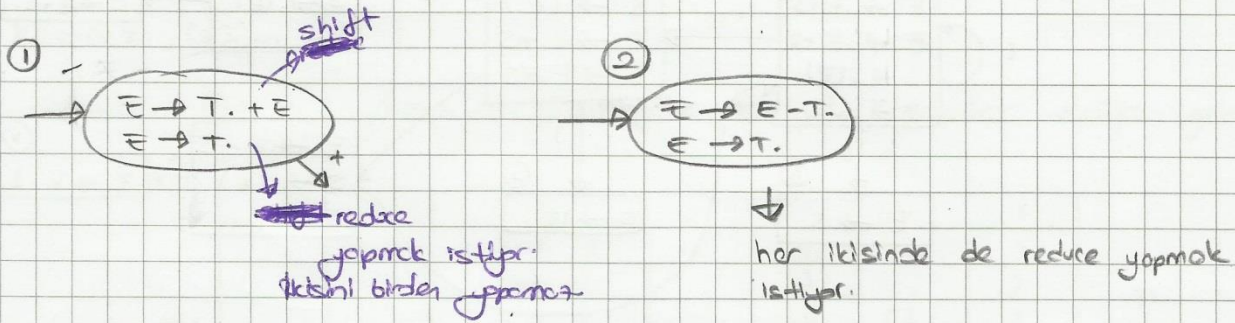 shift
①
E → T. + E
E → T.
+
reduce
yapmak istiyor.
ikisini birden yapamaz
②
E → E - T.
E → T.
her ikisinde de reduce yapmak
istiyor.